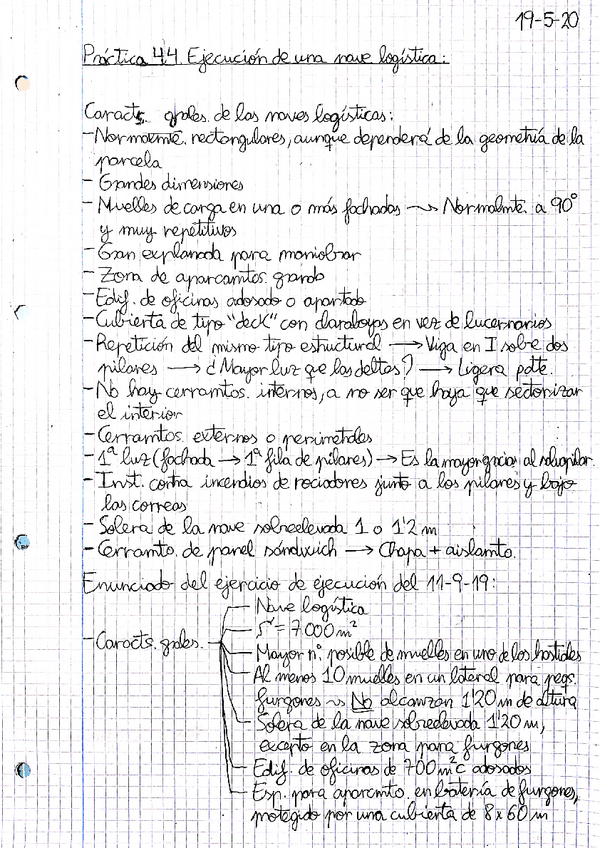 19-5-20
Práctica 4.4. Ejecución de una nave logística:
Caracts. grales. de las naves logísticas:
- Normalmente. rectangulares, aunque dependerá de la geometría de la
parcela
- Grandes dimensiones
- Muelles de carga en una o más fachadas ⟿ Normalmte. a 90°
y muy repetitivos
- Gran explanada para maniobrar
- Zona de aparcamtos. grande
- Edif. de oficinas adosado o apartado
- Cubierta de tipo "deck" con claraboyas en vez de lucernarios
- Repetición del mismo tipo estructural → Viga en I sobre dos
pilares → ¿Mayor luz que las deltas? → Ligera pdte.
- No hay cerramtos. internos, a no ser que haya que sectorizar
el interior
- Cerramtos. externos o perimetrales
- 1ª luz (fachada → 1ª fila de pilares) → Es la mayor gracias al
- Inst. contra incendios de rociadores junto a los pilares y bajo
las correas
- Solera de la nave sobreelevada 1 o 1'2 m
- Cerramto. de panel sándwich → Chapa + aislamto.
Enunciado del ejercicio de ejecución del 11-9-19:
- Caracts. grales.
Nave logística
S = 7000 m²
Mayor nº. posible de muelles en uno de los hastiales
Al menos 10 muelles en un lateral para peqs.
furgones ⟿ No alcanzan 1'20 m de altura
Solera de la nave sobreelevada 1'20 m,
excepto en la zona para furgones
Edif. de oficinas de 700 m²c adosados
Esp. para aparcmto. en batería de furgones,
protegido por una cubierta de 8 x 60 m